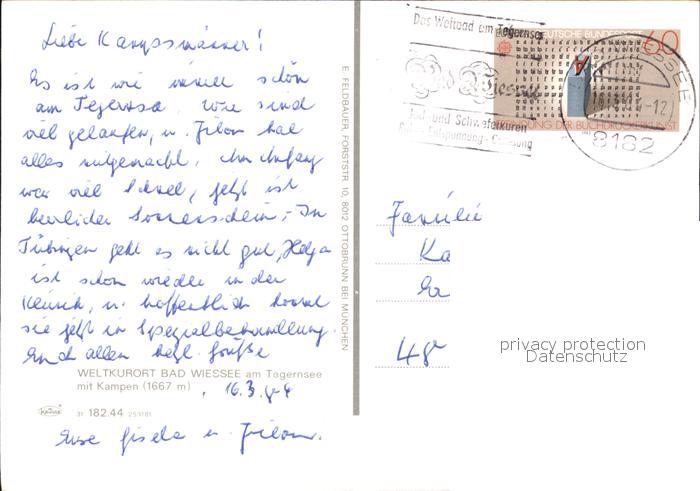 Liebe Kampsmänner!
Es ist wie immer schön
am Tegernsee. Wir sind
viel gelaufen, u. Filou hat
alles mitgemacht. Am Anfang
war viel Schnee, jetzt ist
herrlicher Sonnenschein. In
Tübingen geht es nicht gut, Helga
ist schon wieder in der
Klinik, u. hoffentlich kommt
sie jetzt in Spezialbehandlung.
Euch allen herzl. Grüße
WELTKURORT BAD WIESSEE am Tegernsee
mit Kampen (1667 m)
16.3.84
31 182.44
Eure Gisela u. Filou.
E. FELDBAUER, FORSTSTR. 10, 8012 OTTOBRUNN BEI MÜNCHEN
Das Weltbad am Tegernsee
Bad Wiessee
Jod- und Schwefelkuren
Entspannung - Genesung
DEUTSCHE BUNDESPOST
60
ERFINDUNG DER BUCHDRUCKERKUNST
8182
Familie
Ka
48
privacy protection
Datenschutz